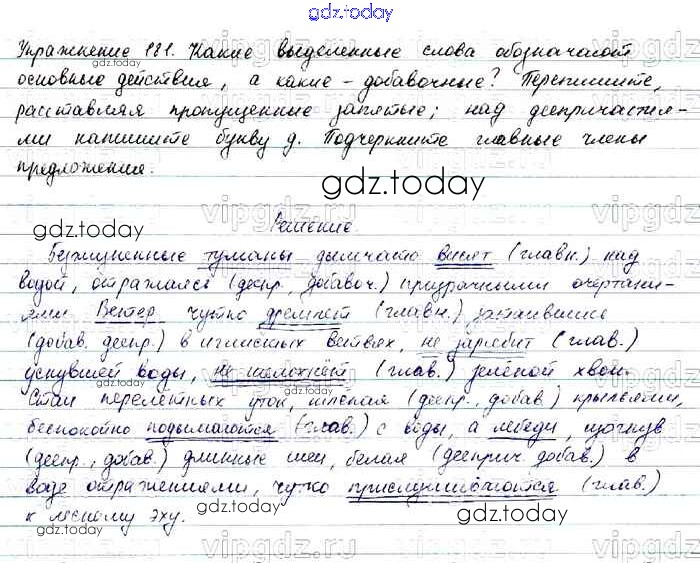 gdz.today
Упражнение 181. Какие выделенные слова обозначают
основные действия, а какие – добавочные? Перепишите,
расставляя пропущенные запятые; над деепричастия-
ми напишите букву д. Подчеркните главные члены
предложения.
gdz.today
gdz.today
Решение.
Безжизненные туманы дымчато висят (главн.) над
водой, отражаясь (деепр. добавоч.) призрачными очертани-
ями. Ветер чутко дремлет (главн.) затаившись
(добав. деепр.) в иглистых ветвях, не зарябит (глав.)
уснувшей воды, не шелохнёт (глав.) зелёной хвои.
gdz.today
Стаи перелётных уток, плеская (деепр., добав.) крыльями,
беспокойно подымаются (глав.) с воды, а лебеди, изогнув
gdz.today
(деепр., добав.) длинные шеи, белая (дееприч. добав.) в
воде отражениями, чутко прислушиваются (глав.)
к лесному эху.
gdz.today
vipgdz